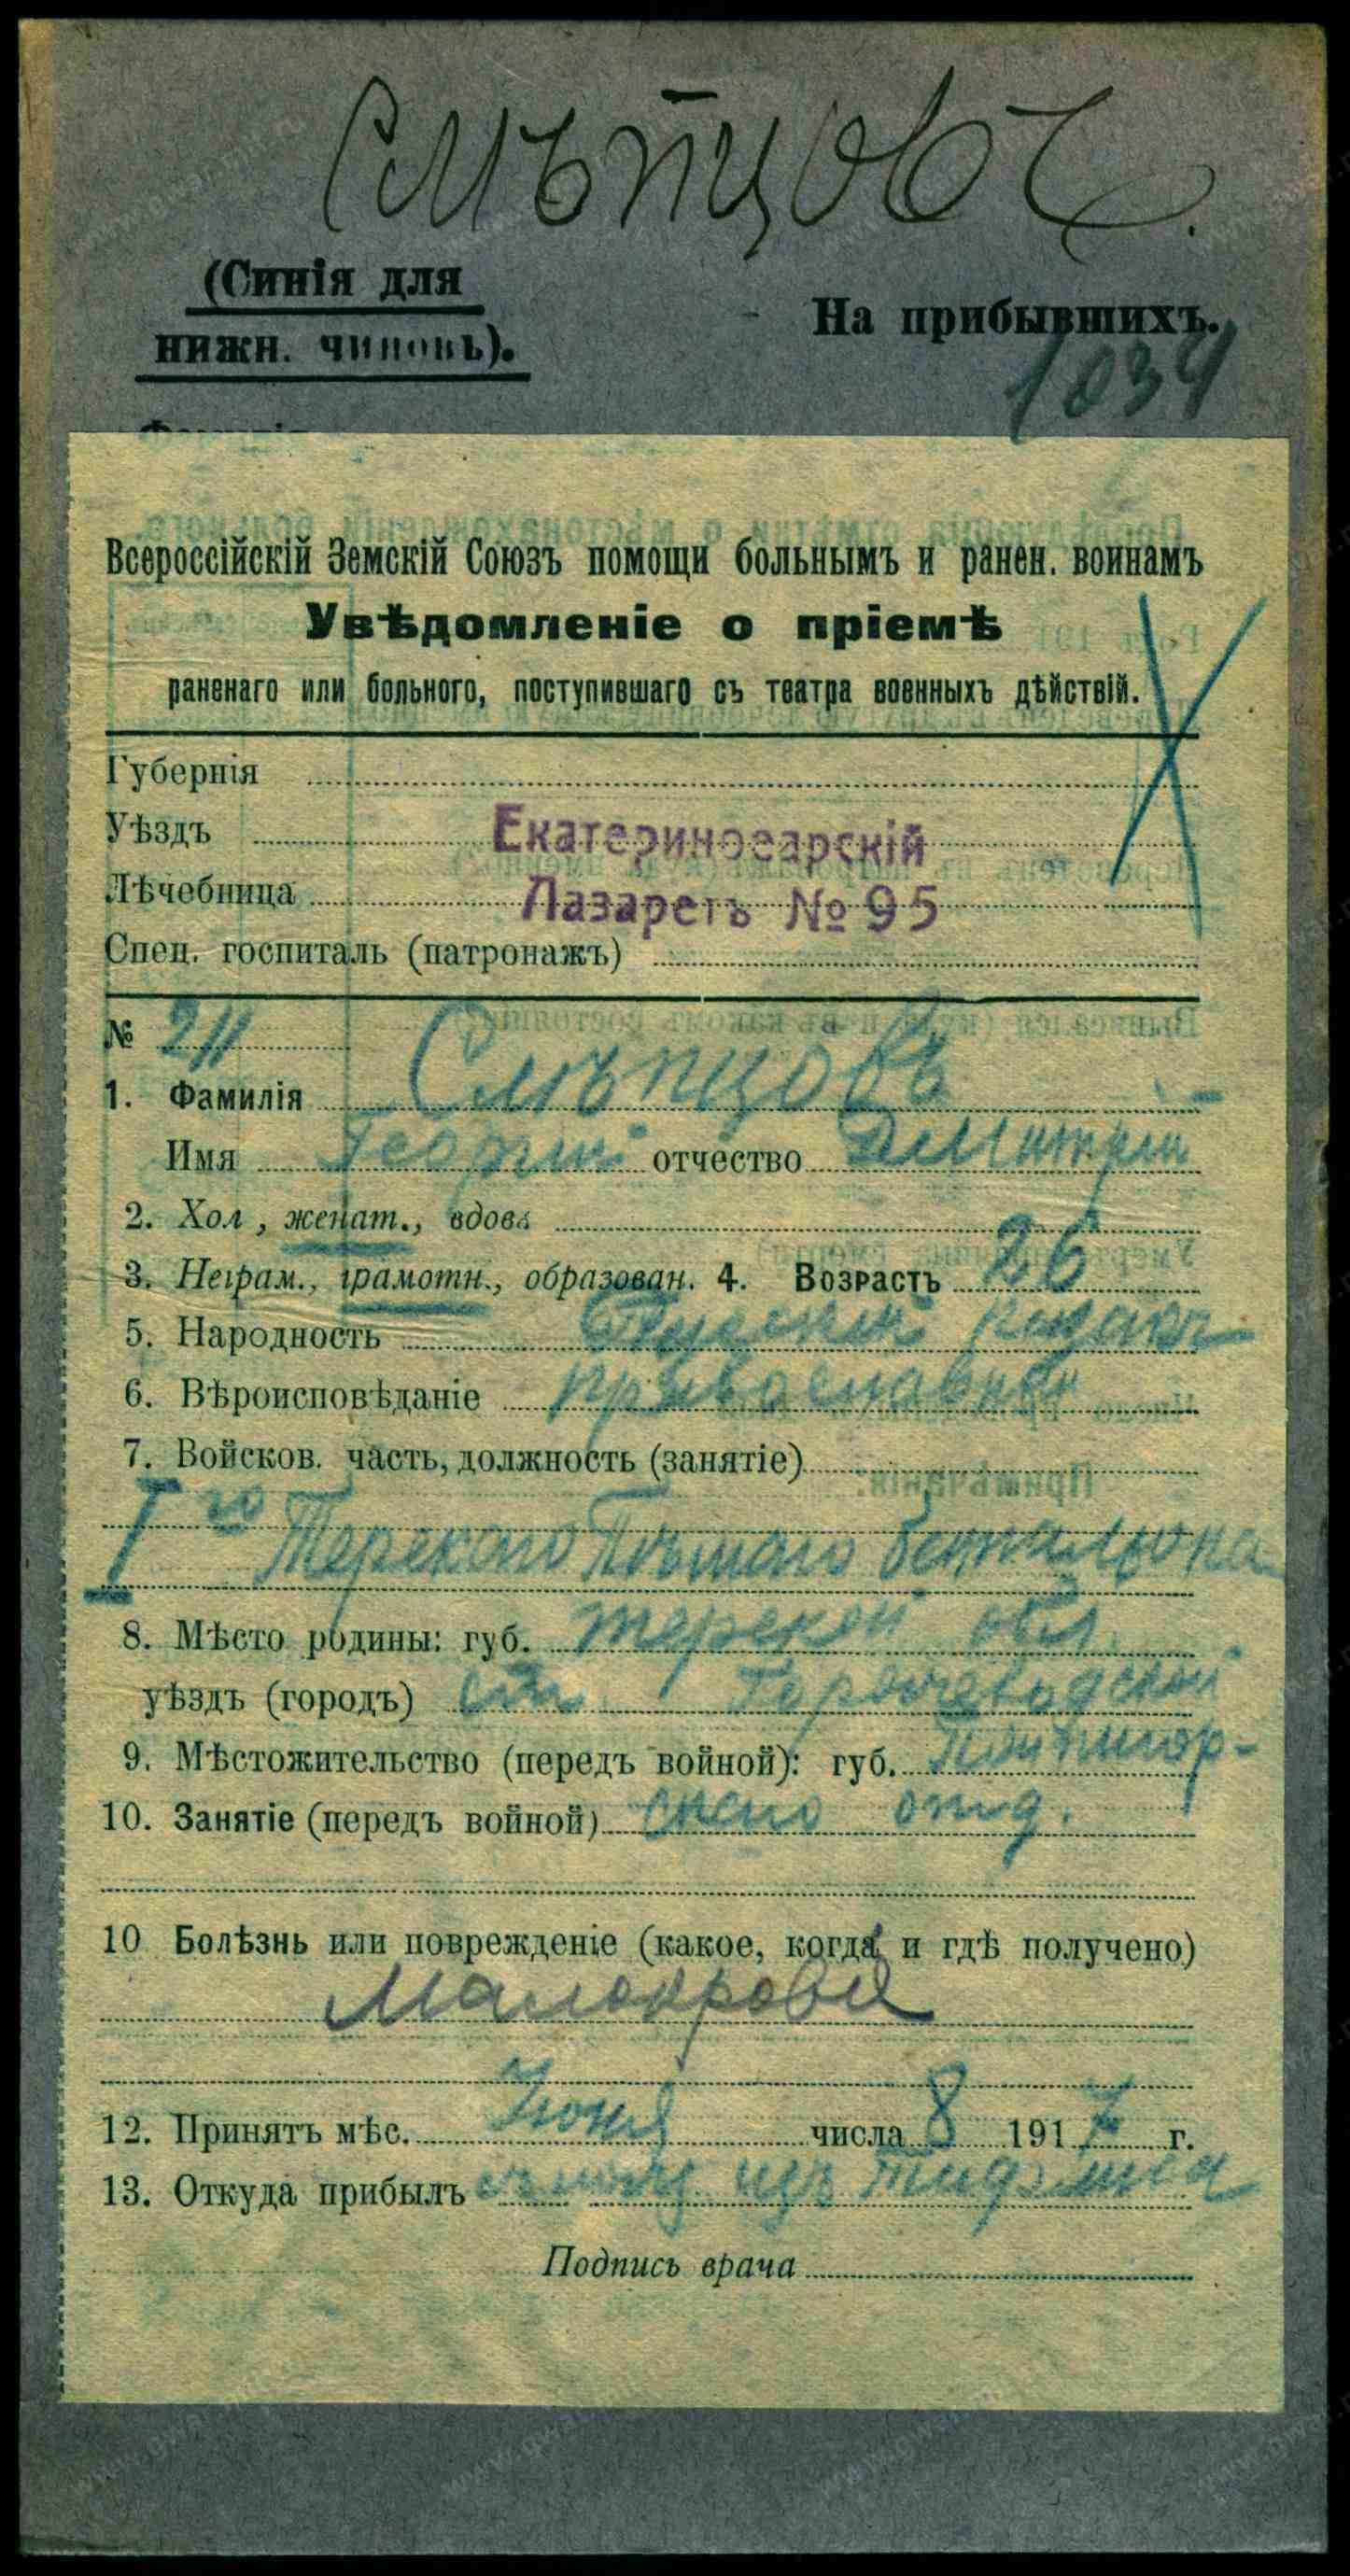 Слѣпцовъ.
(Синія для
нижн. чиновъ).
На прибывшихъ.
1034
Фамилія
Всероссійскій Земскій Союзъ помощи больнымъ и ранен. воинамъ
Увѣдомленіе о пріемѣ
раненаго или больного, поступившаго съ театра военныхъ дѣйствій.
Губернія
Уѣздъ Екатериносарскій
Лѣчебница Лазаретъ № 95
Спец. госпиталь (патронажъ)
№ 211
1. Фамилія Слѣпцовъ
Имя Георгій отчество Дмитрія
2. Хол, женат., вдовъ
3. Неграм., грамотн., образован. 4. Возрастъ 26
5. Народность Русскій казакъ
6. Вѣроисповѣданіе православн
7. Войсков. часть, должность (занятіе)
I го Терскаго Пѣшаго батальона
8. Мѣсто родины: губ. Терской обл.
уѣздъ (городъ) ст. Горячеводской
9. Мѣстожительство (передъ войной): губ. Пятигор-
10. Занятіе (передъ войной) скаго отд.
10 Болѣзнь или поврежденіе (какое, когда и гдѣ получено)
Малокровіе
12. Принятъ мѣс. Іюня числа 8 1917 г.
13. Откуда прибылъ изъ Тифлиса
Подпись врача